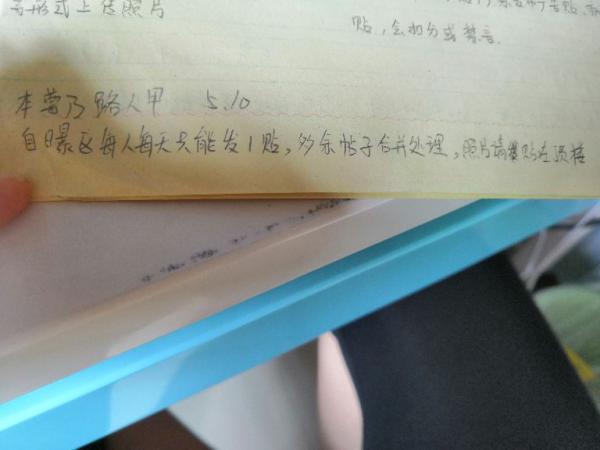 形式上传照片
贴,会扣分或禁言.
本尊乃路人甲 5.10
自曝区每人每天只能发1贴,多余帖子合并处理,照片请贴在顶楼